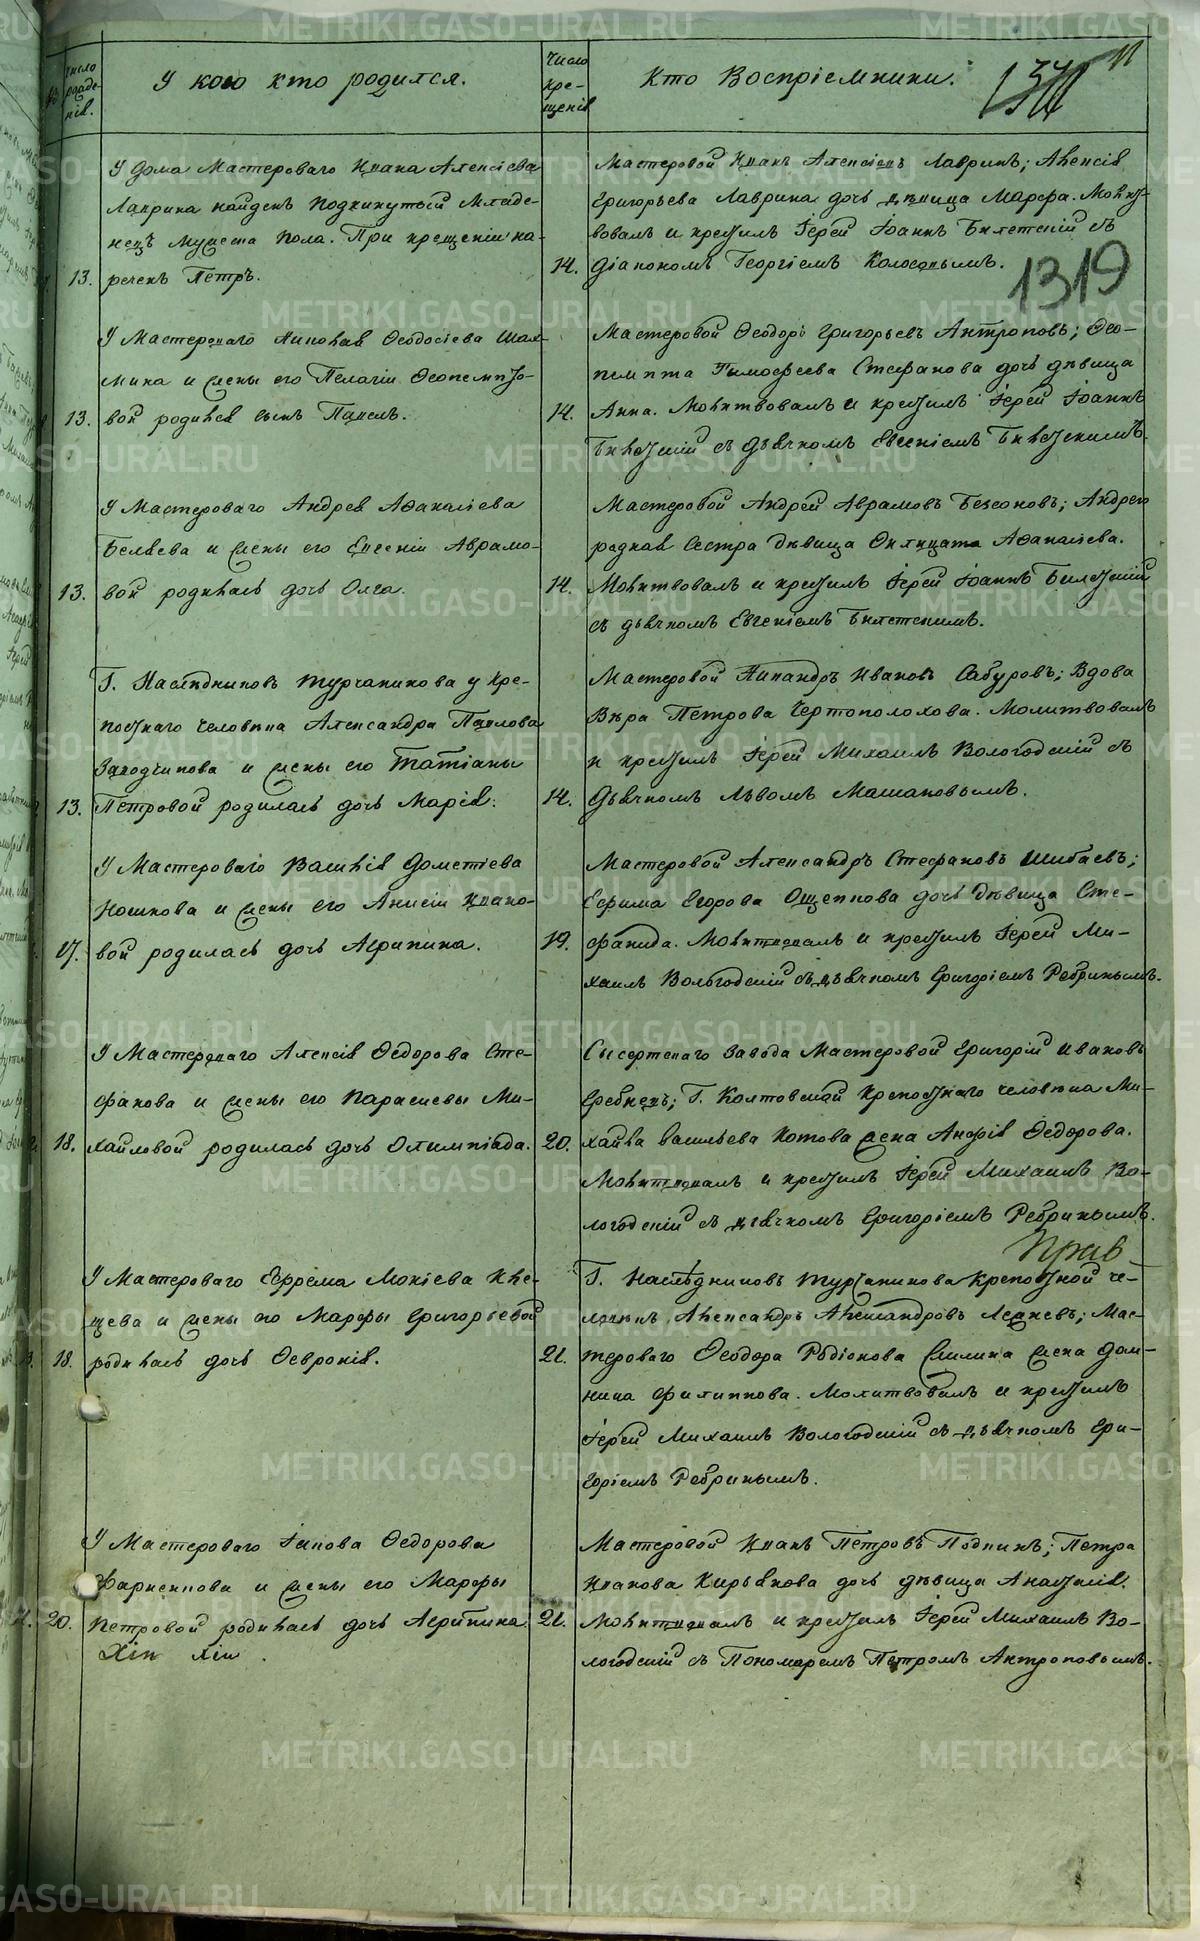 Число рожденія.
У кого кто родился.
Число крещенія
Кто Воспріемники.
11
1319
У дома Мастероваго Ивана Алексіева
Лаврина найденъ подкинутый младе-
нецъ мужеска пола. При крещеніи на-
13. реченъ Петръ.
Мастеровой Иванъ Алексіевъ Лавринъ; Алексія
Григорьева Лаврина дочь дѣвица Марфа. Молит-
вовалъ и крестилъ Іерей Іоаннъ Билетскій съ
14. Діакономъ Георгіемъ Колосовымъ.
У Мастероваго Николая Ѳеодосіева
и жены его Пелагіи Ѳеопемпто-
13. вой родился сынъ Павелъ.
Мастеровой Ѳеодоръ Григорьевъ Антроповъ; Ѳео-
пемпта Тимофеева Стефанова дочь дѣвица
14. Анна. Молитвовалъ и крестилъ Іерей Іоаннъ
Билетскій съ дьячкомъ Евгеніемъ Билетскимъ.
У Мастероваго Андрея Аѳанасіева
Беляева и жены его Евгеніи Аврамо-
13. вой родилась дочь Олга.
Мастеровой Андрей Аврамовъ Безсоновъ; Андрею
родная сестра дѣвица Аѳанасіева.
14. Молитвовалъ и крестилъ Іерей Іоаннъ Билетскій
съ дьячкомъ Евгеніемъ Билетскимъ.
Г. Наслѣдниковъ Турчанинова у кре-
постнаго человѣка Александра Павлова
Заводчикова и жены его Татіаны
13. Петровой родилась дочь Марія.
Мастеровой Никандръ Ивановъ Сабуровъ; Вдова
Вѣра Петрова Чертополохова. Молитвовалъ
и крестилъ Іерей Михаилъ Вологодскій съ
14. Дьячкомъ Львомъ Машановымъ.
У Мастероваго Василія Дометіева
Ношкова и жены его Анисіи Ивано-
17. вой родилась дочь Агрипина.
Мастеровой Александръ Стефановъ Шибаевъ;
Ефима Егорова Ощепкова дочь дѣвица Сте-
19. фанида. Молитвовалъ и крестилъ Іерей Ми-
хаилъ Вологодскій съ дьячкомъ Григоріемъ Ребринымъ.
У Мастероваго Алексія Ѳедорова Сте-
фанова и жены его Параскевы Ми-
18. хайловой родилась дочь Олимпіада.
Сысертскаго Завода Мастеровой Григорій Ивановъ
Гребневъ; Г. Колтовской крепостнаго человѣка Ми-
20. хайла Васильева Котова жена Анфія Ѳедорова.
Молитвовалъ и крестилъ Іерей Михаилъ Во-
логодскій съ дьячкомъ Григоріемъ Ребринымъ.
У Мастероваго Ефрема Мокіева Кле-
щева и жены его Марфы Григорьевой
18. родилась дочь Ѳевронія.
Г. Наслѣдниковъ Турчанинова Крепостной че-
ловѣкъ Александръ Александровъ; Мас-
21. тероваго Ѳеодора Родіонова жена Дом-
ника Филиппова. Молитвовалъ и крестилъ
Іерей Михаилъ Вологодскій съ дьячкомъ Гри-
горіемъ Ребринымъ.
У Мастероваго Іакова Ѳедорова
и жены его Марфы
20. Петровой родилась дочь Агрипина.
Мастеровой Иванъ Петровъ; Петра
Иванова Кирьякова дочь дѣвица Анастасія.
21. Молитвовалъ и крестилъ Іерей Михаилъ Во-
логодскій съ Пономаремъ Петромъ Антроповымъ.
METRIKI.GASO-URAL.RU